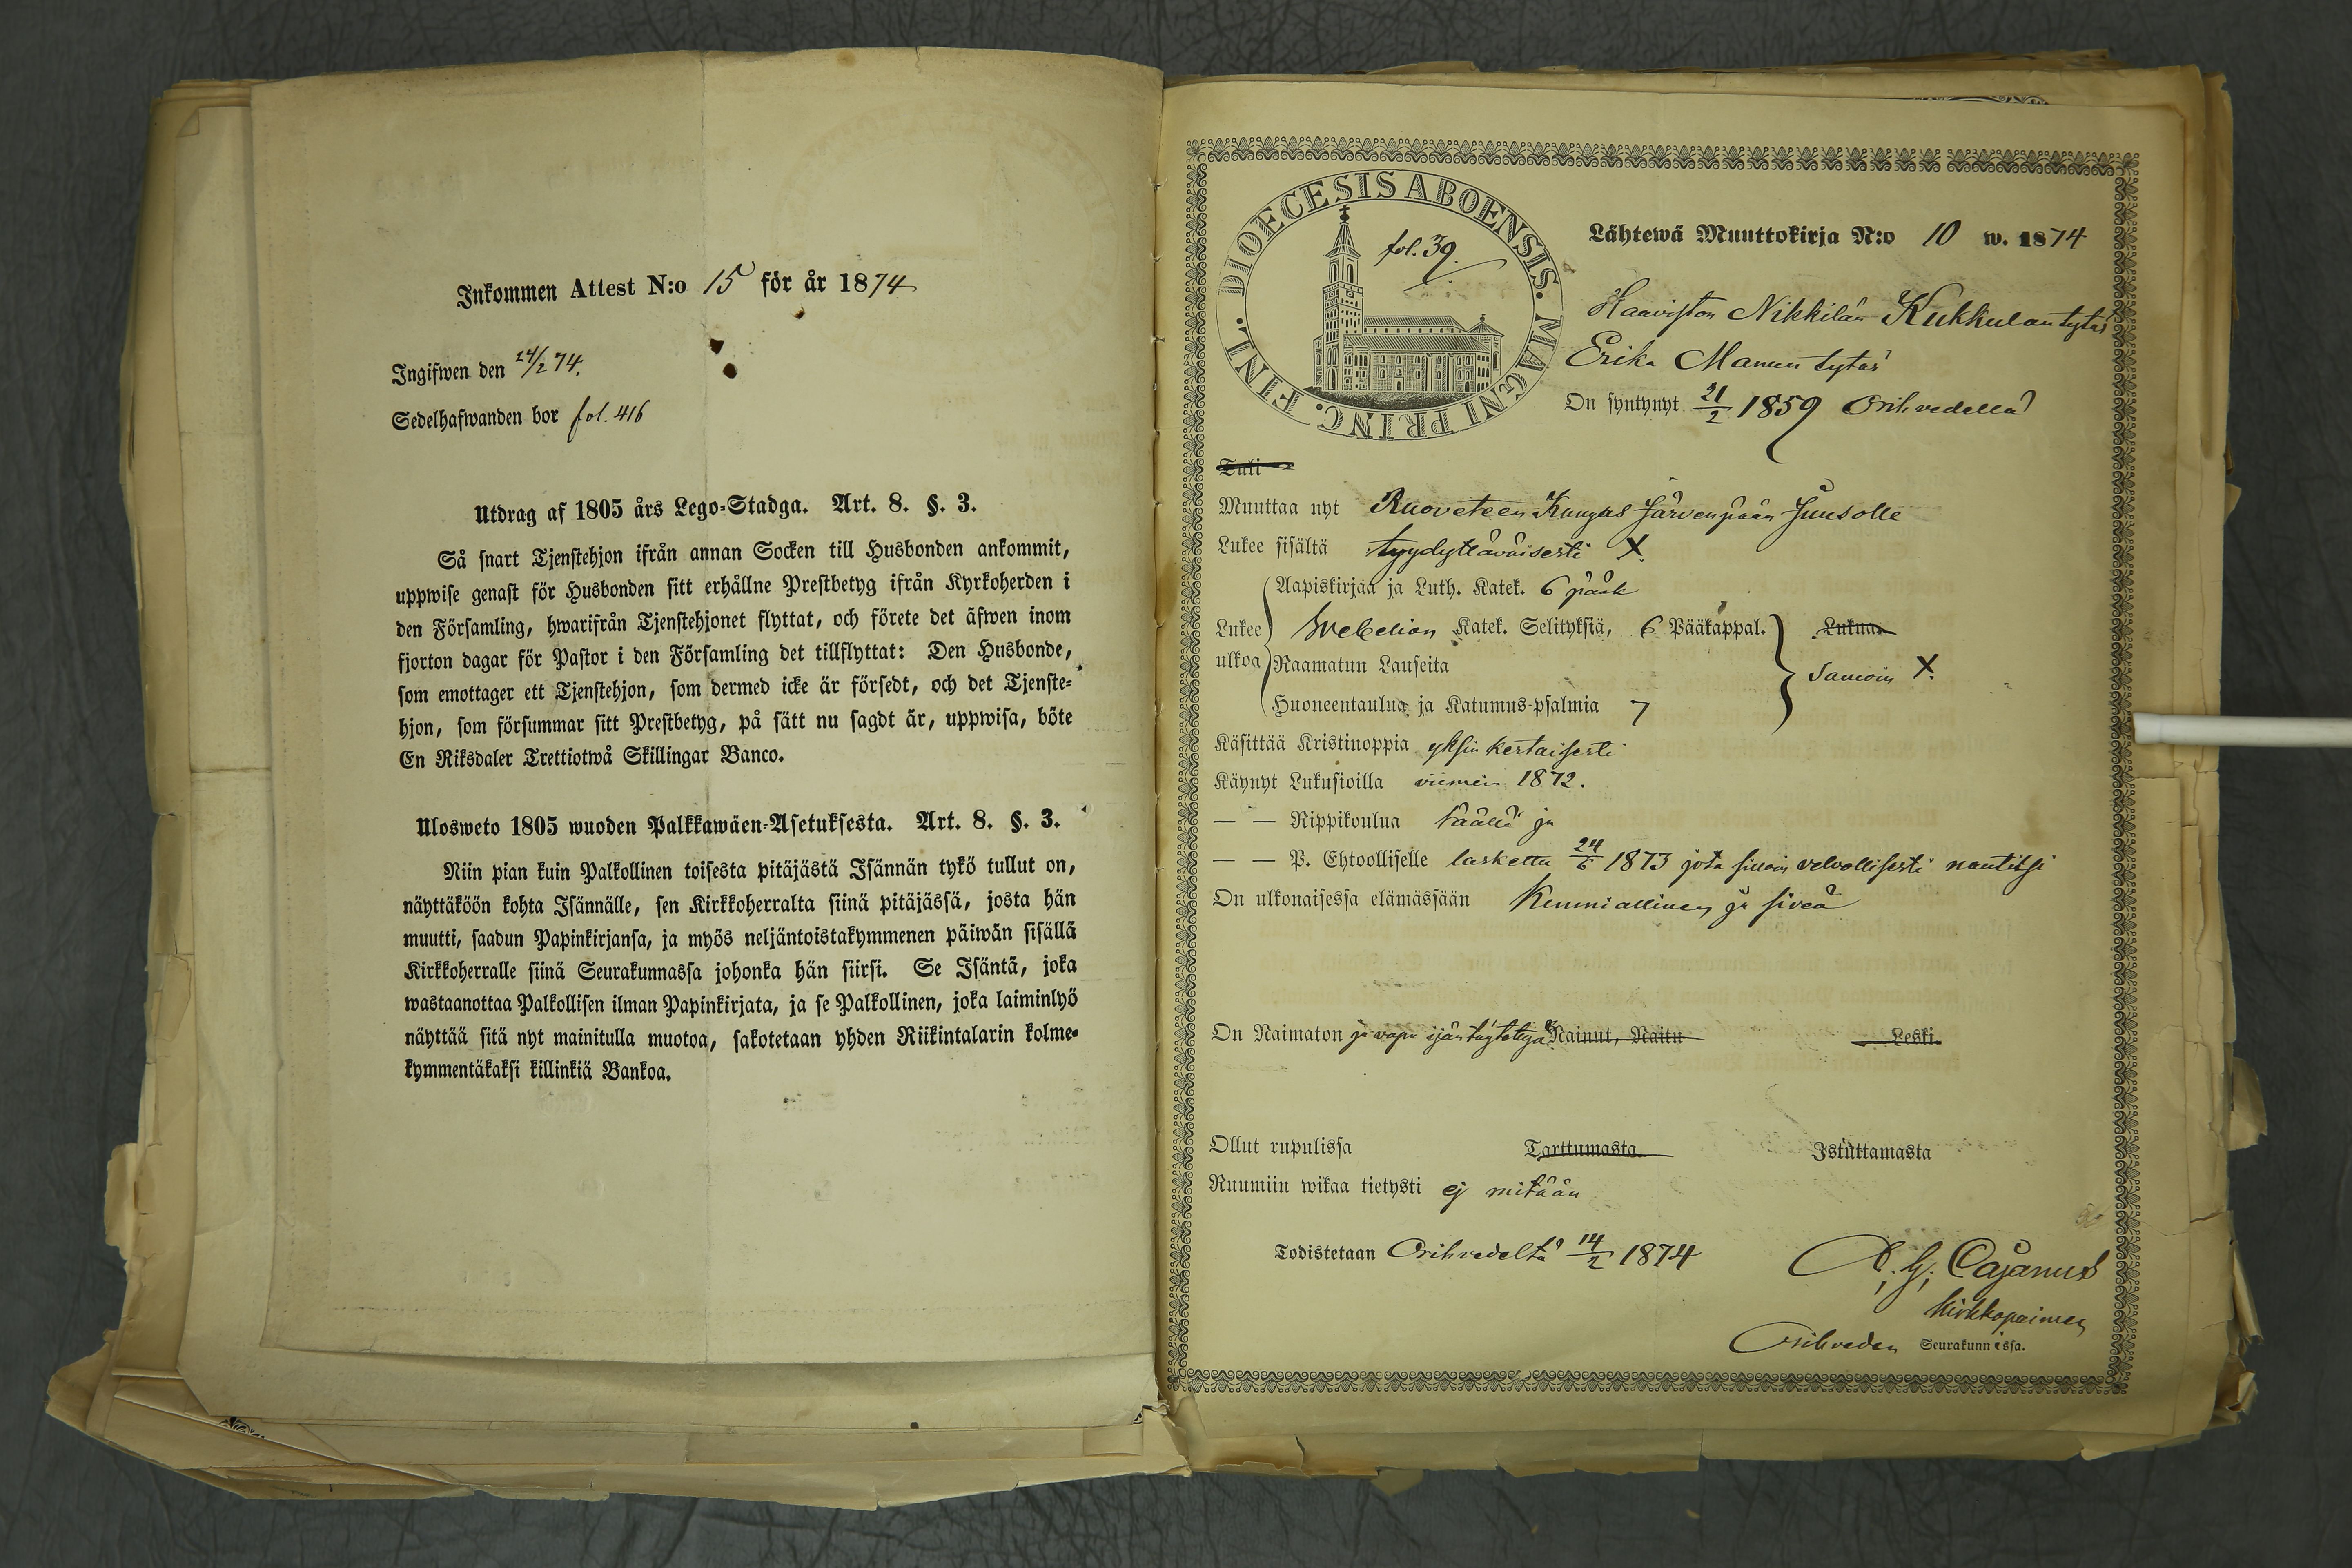 Inkommen Attest N:o 15 för år 1874
Ingifwen den 24/2 74.
Sedelhafwanden bor fol. 416
Utdrag af 1805 års Lego-Stadga. Art. 8. §. 3.
Så snart Tjenstehjon ifrån annan Socken till Husbonden ankommit,
uppwise genast för Husbonden sitt erhållne Prestbetyg ifrån Kyrkoherden i
den Församling, hwarifrån Tjenstehjonet flyttat, och förete det äfwen inom
fjorton dagar för Pastor i den Församling det tillflyttat: Den Husbonde,
som emottager ett Tjenstehjon, som dermed icke är försedt, och det Tjenste-
hjon, som försummar sitt Prestbetyg, på sätt nu sagdt är, uppwisa, böte
En Riksdaler Trettiotwå Skillingar Banco.
Ulosweto 1805 wuoden Palkkawäen-Asetuksesta. Art. 8. §. 3.
Niin pian kuin Palkollinen toisesta pitäjästä Isännän tykö tullut on,
näyttäköön kohta Isännälle, sen Kirkkoherralta siinä pitäjässä, josta hän
muutti, saadun Papinkirjansa, ja myös neljäntoistakymmenen päiwän sisällä
Kirkkoherralle siinä Seurakunnassa johonka hän siirsi. Se Isäntä, joka
wastaanottaa Palkollisen ilman Papinkirjata, ja se Palkollinen, joka laiminlyö
näyttää sitä nyt mainitulla muotoa, sakotetaan yhden Riikintalarin kolme-
kymmentäkaksi killinkiä Bankoa.
DIOECESIS ABOENSIS. MAGNI PRINC. FINL.
fol. 39.
Lähtewä Muuttokirja N:o 10 w. 1874
Haaviston Nikkilän Kukkulan tytär
Erika Manun tytär
On syntynyt 21/2 1859 Orihvedellä
Tuli
Muuttaa nyt Ruoveteen Kangas Järvenpään Juusolle
Lukee sisältä tyydyttäväisesti X.
Aapiskirjaa ja Luth. Katek. 6 pääk
Lukee ulkoa Svebelion Katek. Selityksiä, 6 Pääkappal. Lukua
Raamatun Lauseita samoin X.
Huoneentaulua ja Katumus-psalmia 7
Käsittää Kristinoppia yksinkertaisesti
Käynyt Lukusioilla viimein 1872.
— — Rippikoulua täällä ja
— — P. Ehtoolliselle laskettu 24/6 1873 jota silloin velvollisesti nautitsi
On ulkonaisessa elämässään kunniallinen ja siveä
On Naimaton ja vapa ijän täytettyä Nainut, Naitu Leski.
Ollut rupulissa Tarttumasta Istuttamasta
Ruumiin wikaa tietysti ej mitään
Todistetaan Orihvedeltä 14/2 1874
A. G. Cajanus
Kirkkopaimen
Orihveden Seurakunnissa.